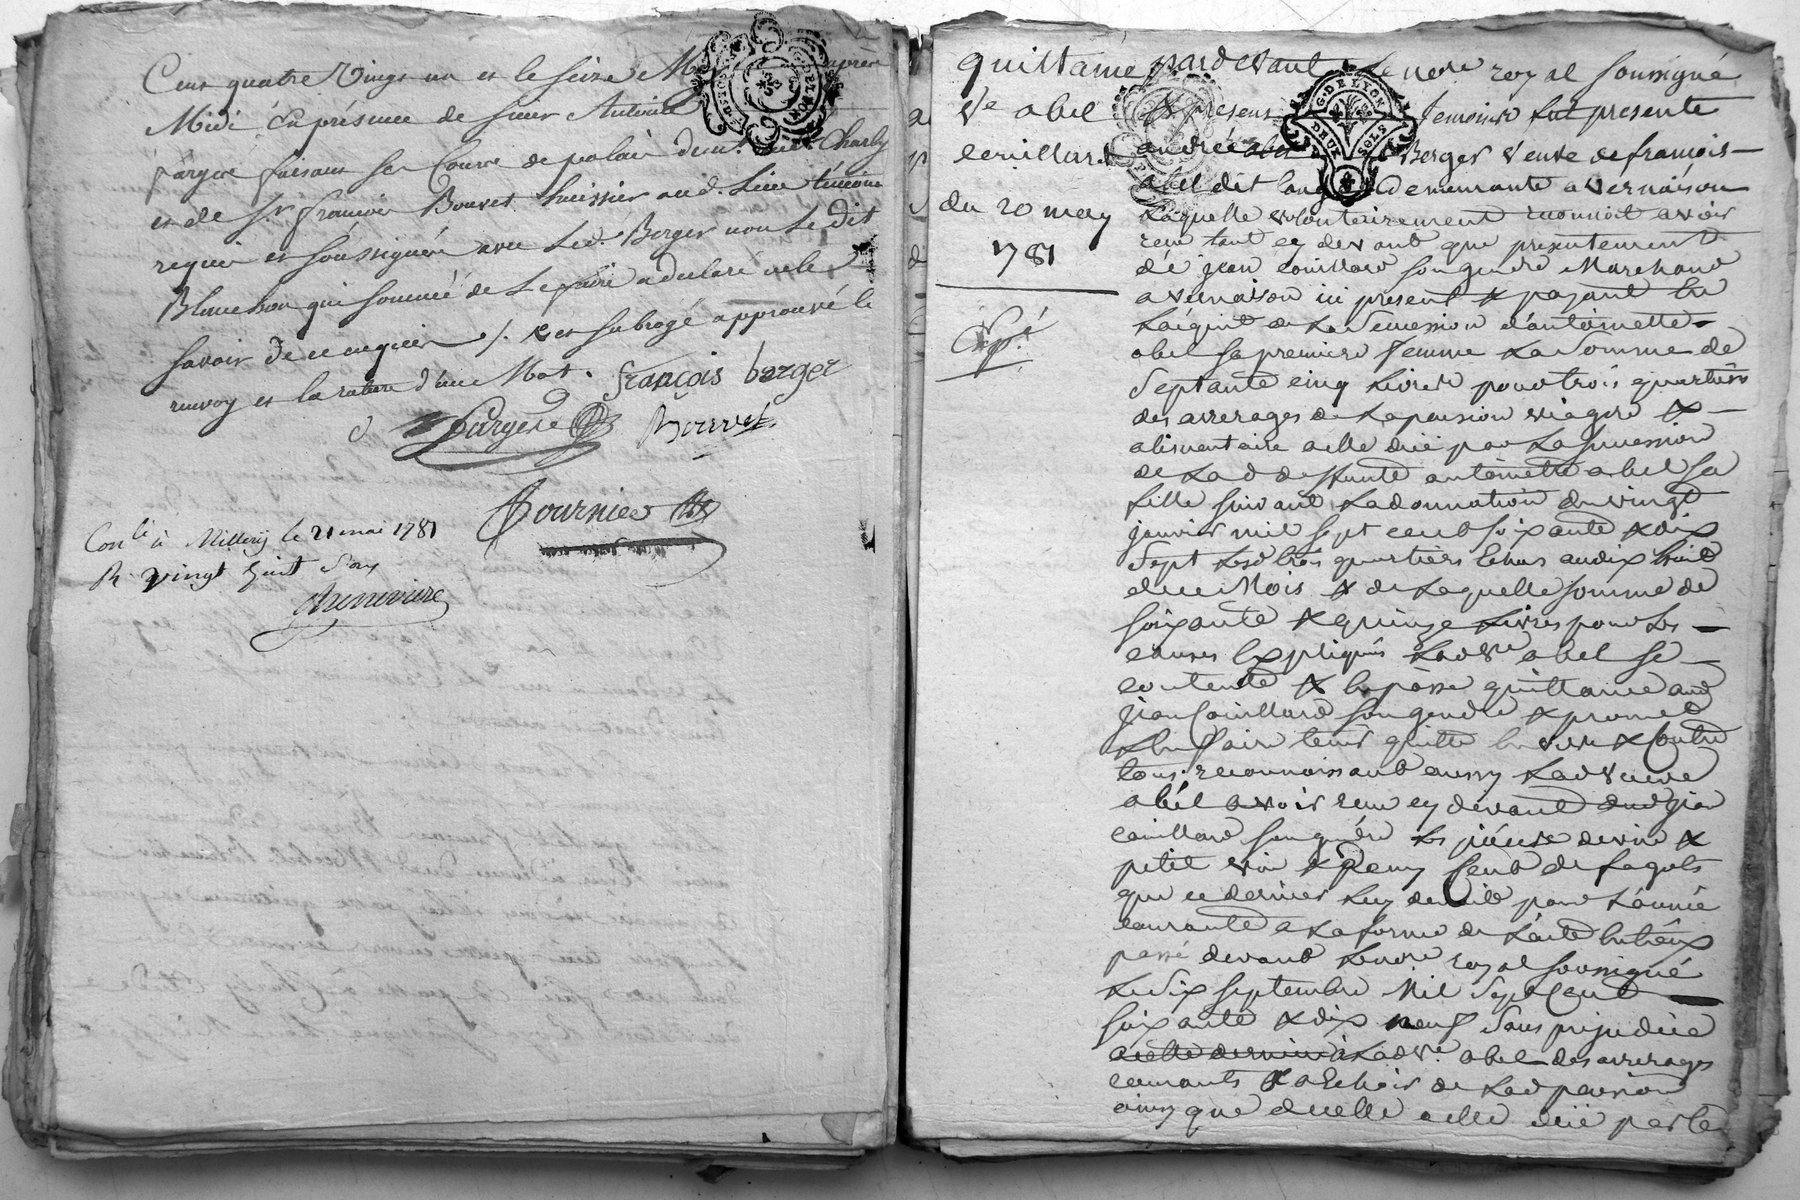 Cens quatre Vingt un et le seize May après
Midi En présence de sieur Antoine
pargere faisant ser Courre de palais dem.t Charly
et de Sr françois Bouvet huissier aud. Lieu témoins
requis et soussignés avec Led. Berger non Le dit
Blanchon qui sommé de Le faire a declaré ne le
savoir de ce enquis /. et subrogé approuvé le
renvoy et la rature d'un Mot. françois berger
Pargere Bouvet
Fournier
Con.lé à Millery le 21 mai 1781
R. vingt huit Sous
quittance
Ve abel
a couillard
du 20 may
1781
Exp.é
G. DE LYON
DEUX SOLS
pardevant Le no.re royal soussigné
& presens temoins fut presente
andrée Berger veuve de françois
abel dit demeurante a vernaison
Laquelle volontairement reconnoit avoir
reçu tant cy devant que presentement
de jean couillard son gendre Marchand
a vernaison ici present & payant en
Lacquit de La Succession d'antoinette
abel sa premiere femme La Somme de
Septante cinq Livres pour trois quartiers
des arrerages de La pension viagere &
alimentaire a elle düe par La Succession
de La d deffunte antoinette abel sa
fille suivant La donnation du vingt
janvier mil sept cent soixante & dix
Sept Lesd trois quartiers Echus au dix huit
de ce Mois & de Laquelle somme de
soixante & quinze Livres pour Les
causes Expliqués Lad Ve abel se
contente & En passe quittance aud
jean Couillard son gendre & promet
L'en faire tenir quitte Envers & Contre
tous. reconnoissant aussy Lad veuve
abel avoir reçu cy devant dud jean
couillard son gendre Les piéces de vin &
petit vin & Demy Cent de fagots
que ce dernier Luy devoit pour L'année
courante a La forme de L'acte Entr'eux
passé devant Le no.re royal soussigné
Le Six Septembre Mil Sept Cent
soixante & dix neuf Sans prejudice
a cette derniere a Lad Ve. abel des arrerages
courants & a Echoir de Lad pension
ainsy que de celle a elle düe par Le